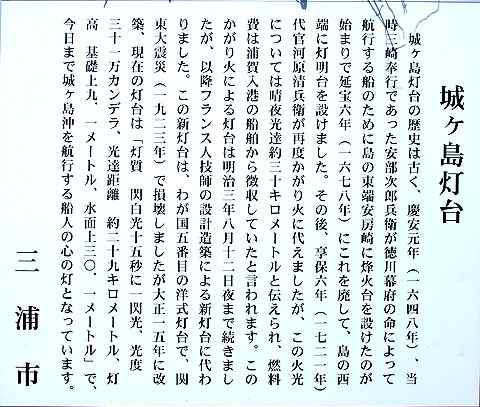 城ヶ島灯台
城ヶ島灯台の歴史は古く、慶安元年（一六四八年）、当
時三崎奉行であった安部次郎兵衛が徳川幕府の命によって
航行する船のために島の東端安房崎に烽火台を設けたのが
始まりで延宝六年（一六七八年）にこれを廃して、島の西
端に灯明台を設けました。その後、享保六年（一七二一年）
代官河原清兵衛が再度かがり火に代えましたが、この火光
については晴夜光達約三十キロメートルと伝えられ、燃料
費は浦賀入港の船舶から徴収していたと言われます。この
かがり火による灯台は明治三年八月十二日夜まで続きまし
たが、以降フランス人技師の設計造築による新灯台に代わ
りました。この新灯台は、わが国五番目の洋式灯台で、関
東大震災（一九二三年）で損壊しましたが大正一五年に改
築、現在の灯台は「灯質　閃白光十五秒に一閃光、光度
三十一万カンデラ、光達距離　約二十九キロメートル、灯
高　基礎上九、一メートル、水面上三〇、一メートル」で、
今日まで城ヶ島沖を航行する船人の心の灯となっています。
三浦市